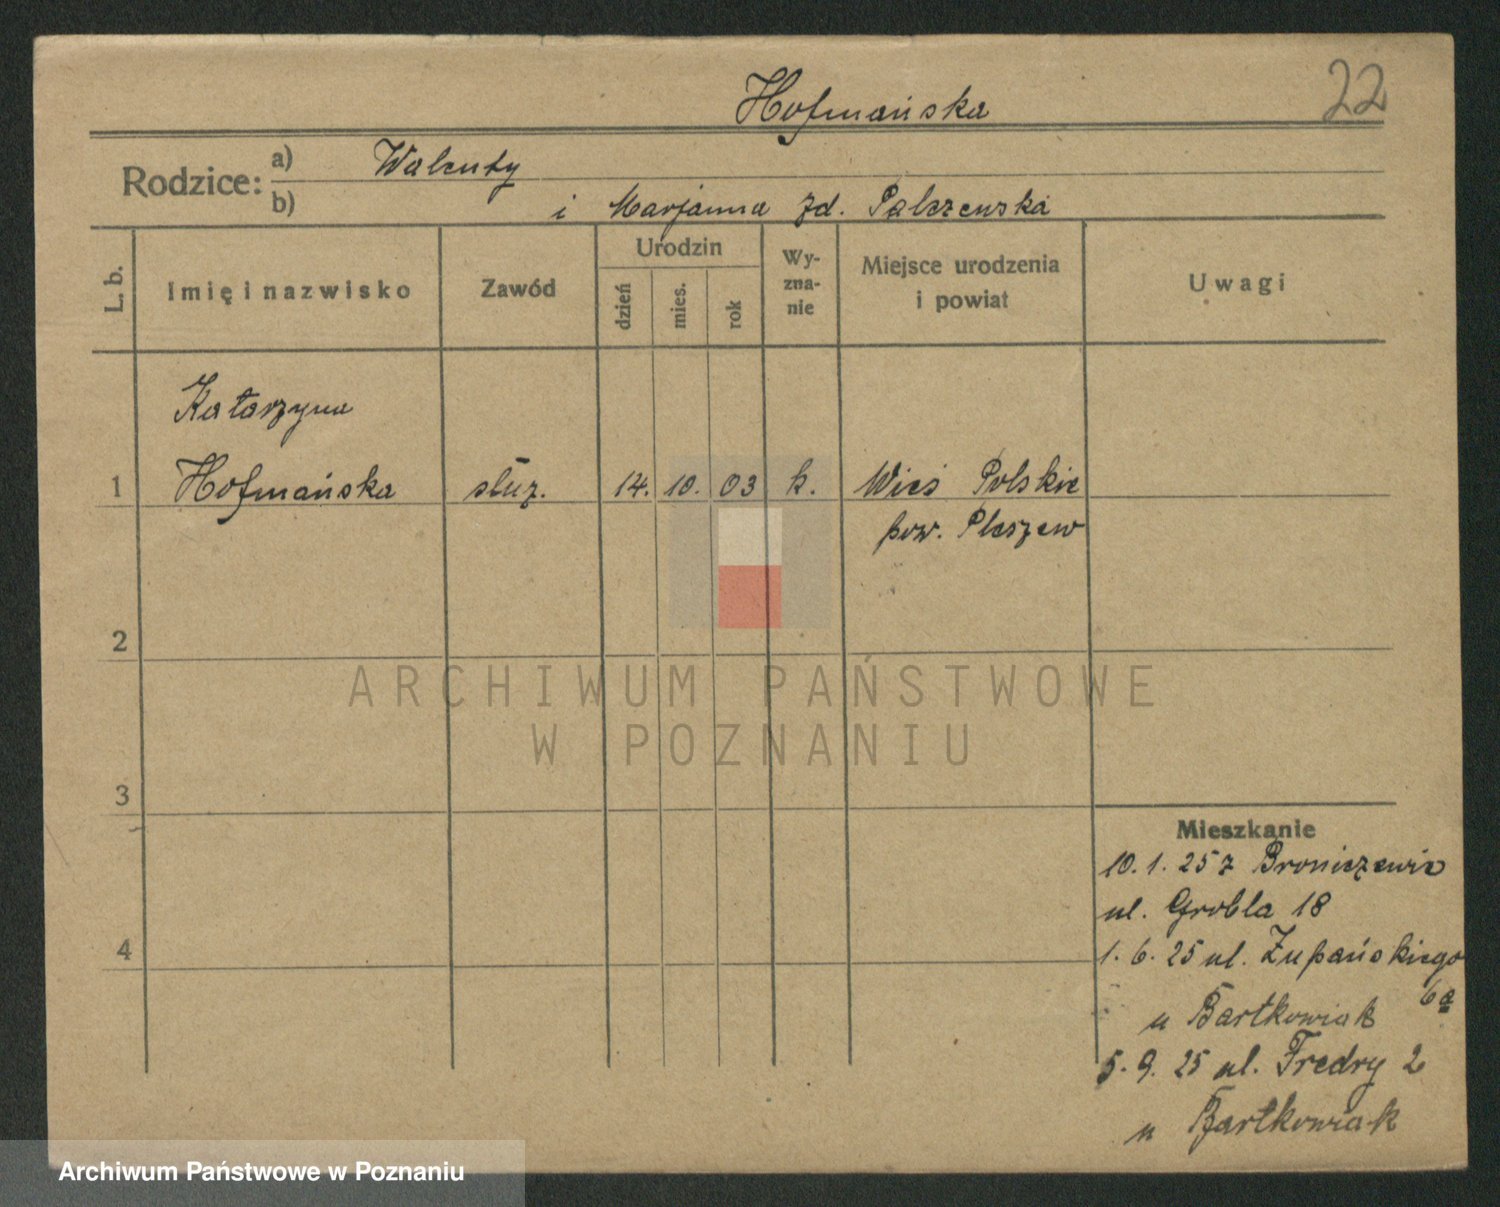 22
Hofmańska
Rodzice: a) Walenty
b) i Marjanna zd. Palczewska
L. b. Imię i nazwisko Zawód Urodzin dzień mies. rok Wy-zna-nie Miejsce urodzenia i powiat Uwagi
Katarzyna
1 Hofmańska służ. 14. 10. 03 k. Wieś Polskie
pow. Pleszew
2
ARCHIWUM PAŃSTWOWE
W POZNANIU
3
4
Mieszkanie
10. 1. 25 z Broniszewic
ul. Grobla 18
1. 6. 25 ul. Żupańskiego
6a
u Bartkowiak
5. 9. 25 ul. Fredry 2
u Bartkowiak
Archiwum Państwowe w Poznaniu